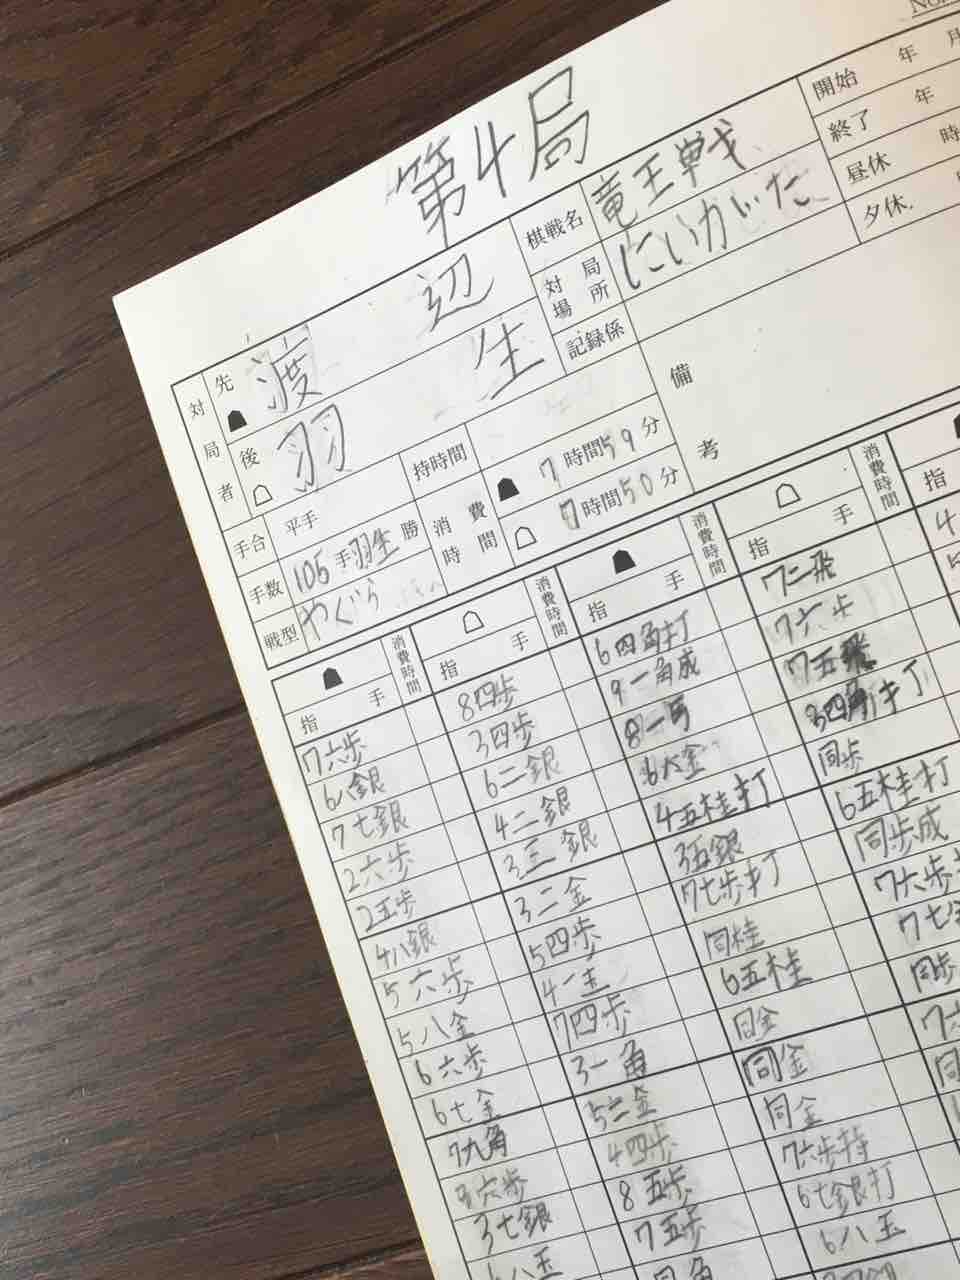 No.
第4局
棋戦名 竜王戦
対局場所 にいがた
記録係
開始 年 月
終了 年
昼休 時
夕休
備考
対局者
先 渡辺
後 羽生
手合 平手
持時間
手数 105手羽生勝
消費時間 7時間59分
7時間50分
戦型 やぐら
指手 消費時間 指手 消費時間 指手 消費時間 指手 消費時間 指
7六歩 8四歩 6四角打 7二飛
6八銀 3四歩 9一角成 7六歩
7七銀 6二銀 8一馬 7五飛
2六歩 4二銀 6六金 8四角打
2五歩 3三銀 4五桂打 同歩
4八銀 3二金 3五銀 6五桂打
5六歩 5四歩 7七歩打 同歩成
5八金 4一玉 同桂 7六歩
6六歩 7四歩 6五桂 7七
6七金 3一角 同金 同歩
7九角 5二金 同金
3六歩 4四歩 同金
3七銀 8五歩 7六歩持
6八玉 7五歩 6七銀打
同角 6八玉